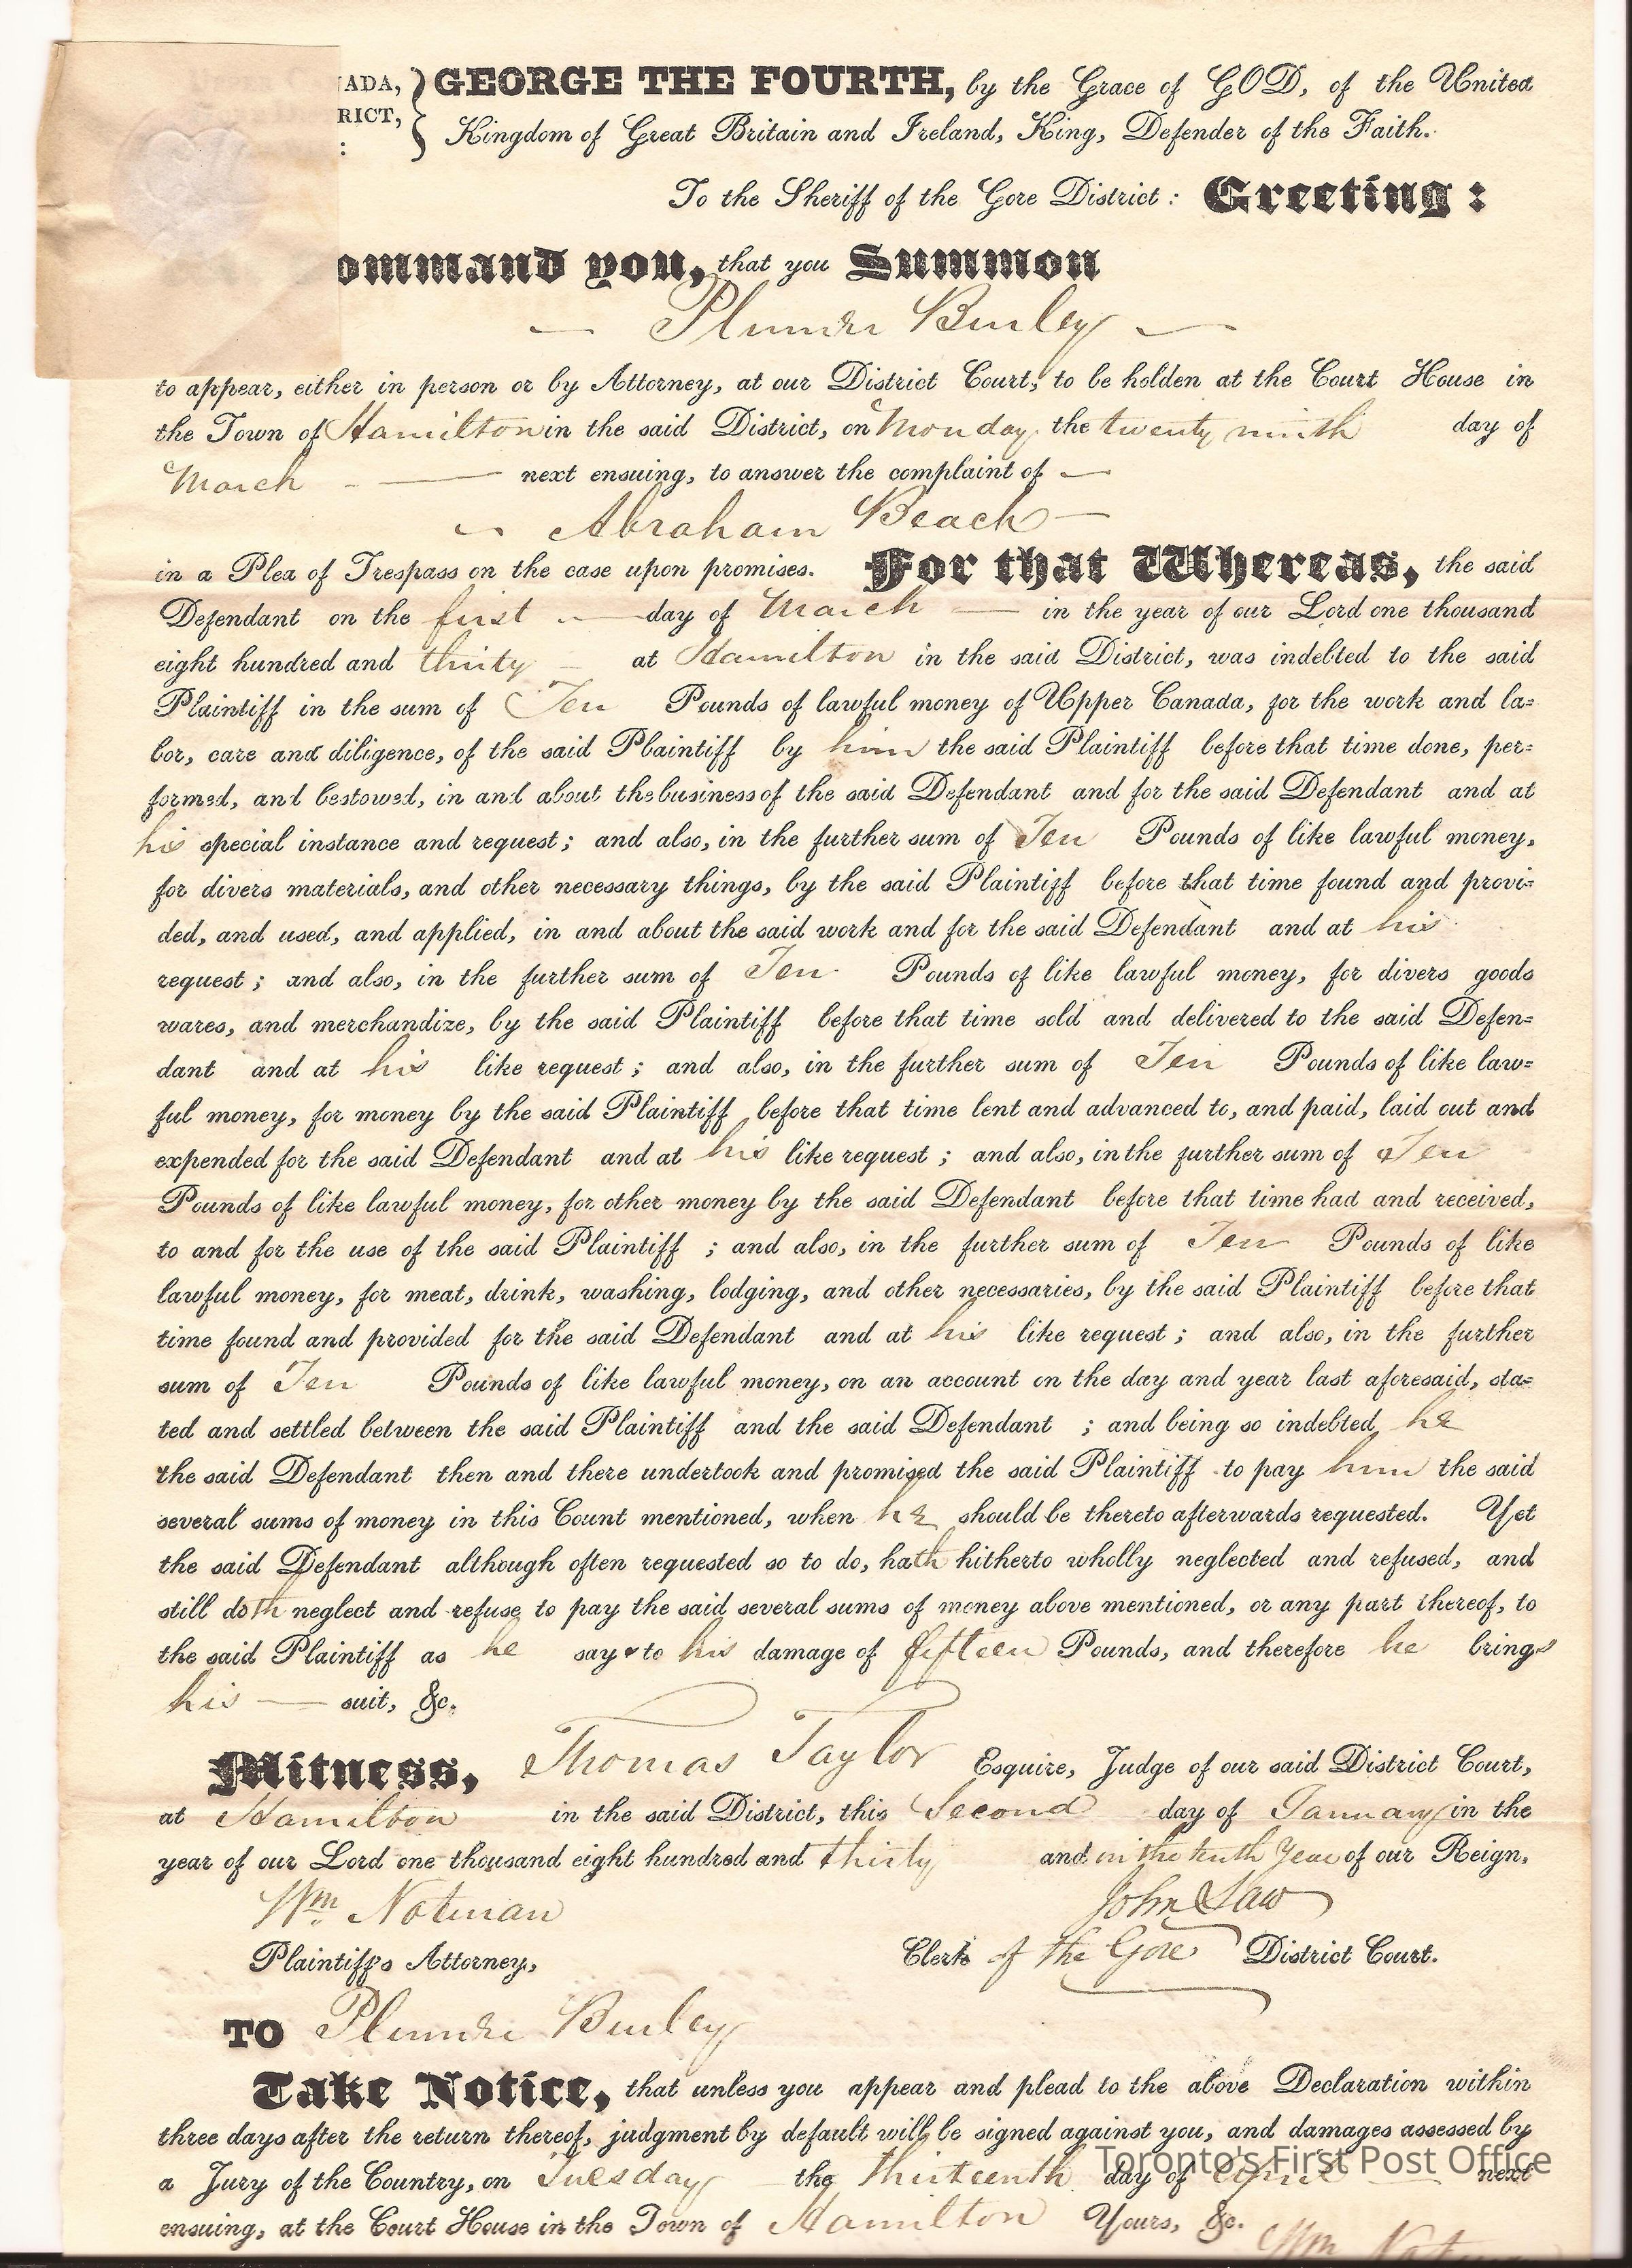 NADA, } GEORGE THE FOURTH, by the Grace of GOD, of the United
RICT, Kingdom of Great Britain and Ireland, King, Defender of the Faith.
:
To the Sheriff of the Gore District : Greeting :
ommand you, that you Summon
— Plumer Burley —
to appear, either in person or by Attorney, at our District Court, to be holden at the Court House in
the Town of Hamilton in the said District, on Monday the twenty ninth day of
March — next ensuing, to answer the complaint of —
— Abraham Beach —
in a Plea of Trespass on the case upon promises. For that Whereas, the said
Defendant on the first — day of March — in the year of our Lord one thousand
eight hundred and thirty — at Hamilton in the said District, was indebted to the said
Plaintiff in the sum of Ten Pounds of lawful money of Upper Canada, for the work and la=
bor, care and diligence, of the said Plaintiff by him the said Plaintiff before that time done, per=
formed, and bestowed, in and about the business of the said Defendant and for the said Defendant and at
his special instance and request ; and also, in the further sum of Ten Pounds of like lawful money,
for divers materials, and other necessary things, by the said Plaintiff before that time found and provi=
ded, and used, and applied, in and about the said work and for the said Defendant and at his
request ; and also, in the further sum of Ten Pounds of like lawful money, for divers goods
wares, and merchandize, by the said Plaintiff before that time sold and delivered to the said Defen=
dant and at his like request ; and also, in the further sum of Ten Pounds of like law=
ful money, for money by the said Plaintiff before that time lent and advanced to, and paid, laid out and
expended for the said Defendant and at his like request ; and also, in the further sum of Ten
Pounds of like lawful money, for other money by the said Defendant before that time had and received,
to and for the use of the said Plaintiff ; and also, in the further sum of Ten Pounds of like
lawful money, for meat, drink, washing, lodging, and other necessaries, by the said Plaintiff before that
time found and provided for the said Defendant and at his like request ; and also, in the further
sum of Ten Pounds of like lawful money, on an account on the day and year last aforesaid, sta=
ted and settled between the said Plaintiff and the said Defendant ; and being so indebted he
the said Defendant then and there undertook and promised the said Plaintiff to pay him the said
several sums of money in this Count mentioned, when he should be thereto afterwards requested. Yet
the said Defendant although often requested so to do, hath hitherto wholly neglected and refused, and
still doth neglect and refuse to pay the said several sums of money above mentioned, or any part thereof, to
the said Plaintiff as he says to his damage of fifteen Pounds, and therefore he brings
his — suit, &c.
Witness, Thomas Taylor Esquire, Judge of our said District Court,
at Hamilton in the said District, this Second day of January in the
year of our Lord one thousand eight hundred and thirty and in the tenth Year of our Reign.
Wm. Notman John Law
Plaintiff's Attorney, Clerk of the Gore District Court.
TO Plumer Burley
Take Notice, that unless you appear and plead to the above Declaration within
three days after the return thereof, judgment by default will be signed against you, and damages assessed by
a Jury of the Country, on Tuesday the thirteenth day of April — next
Toronto's First Post Office
ensuing, at the Court House in the Town of Hamilton Yours, &c.
Wm Notman